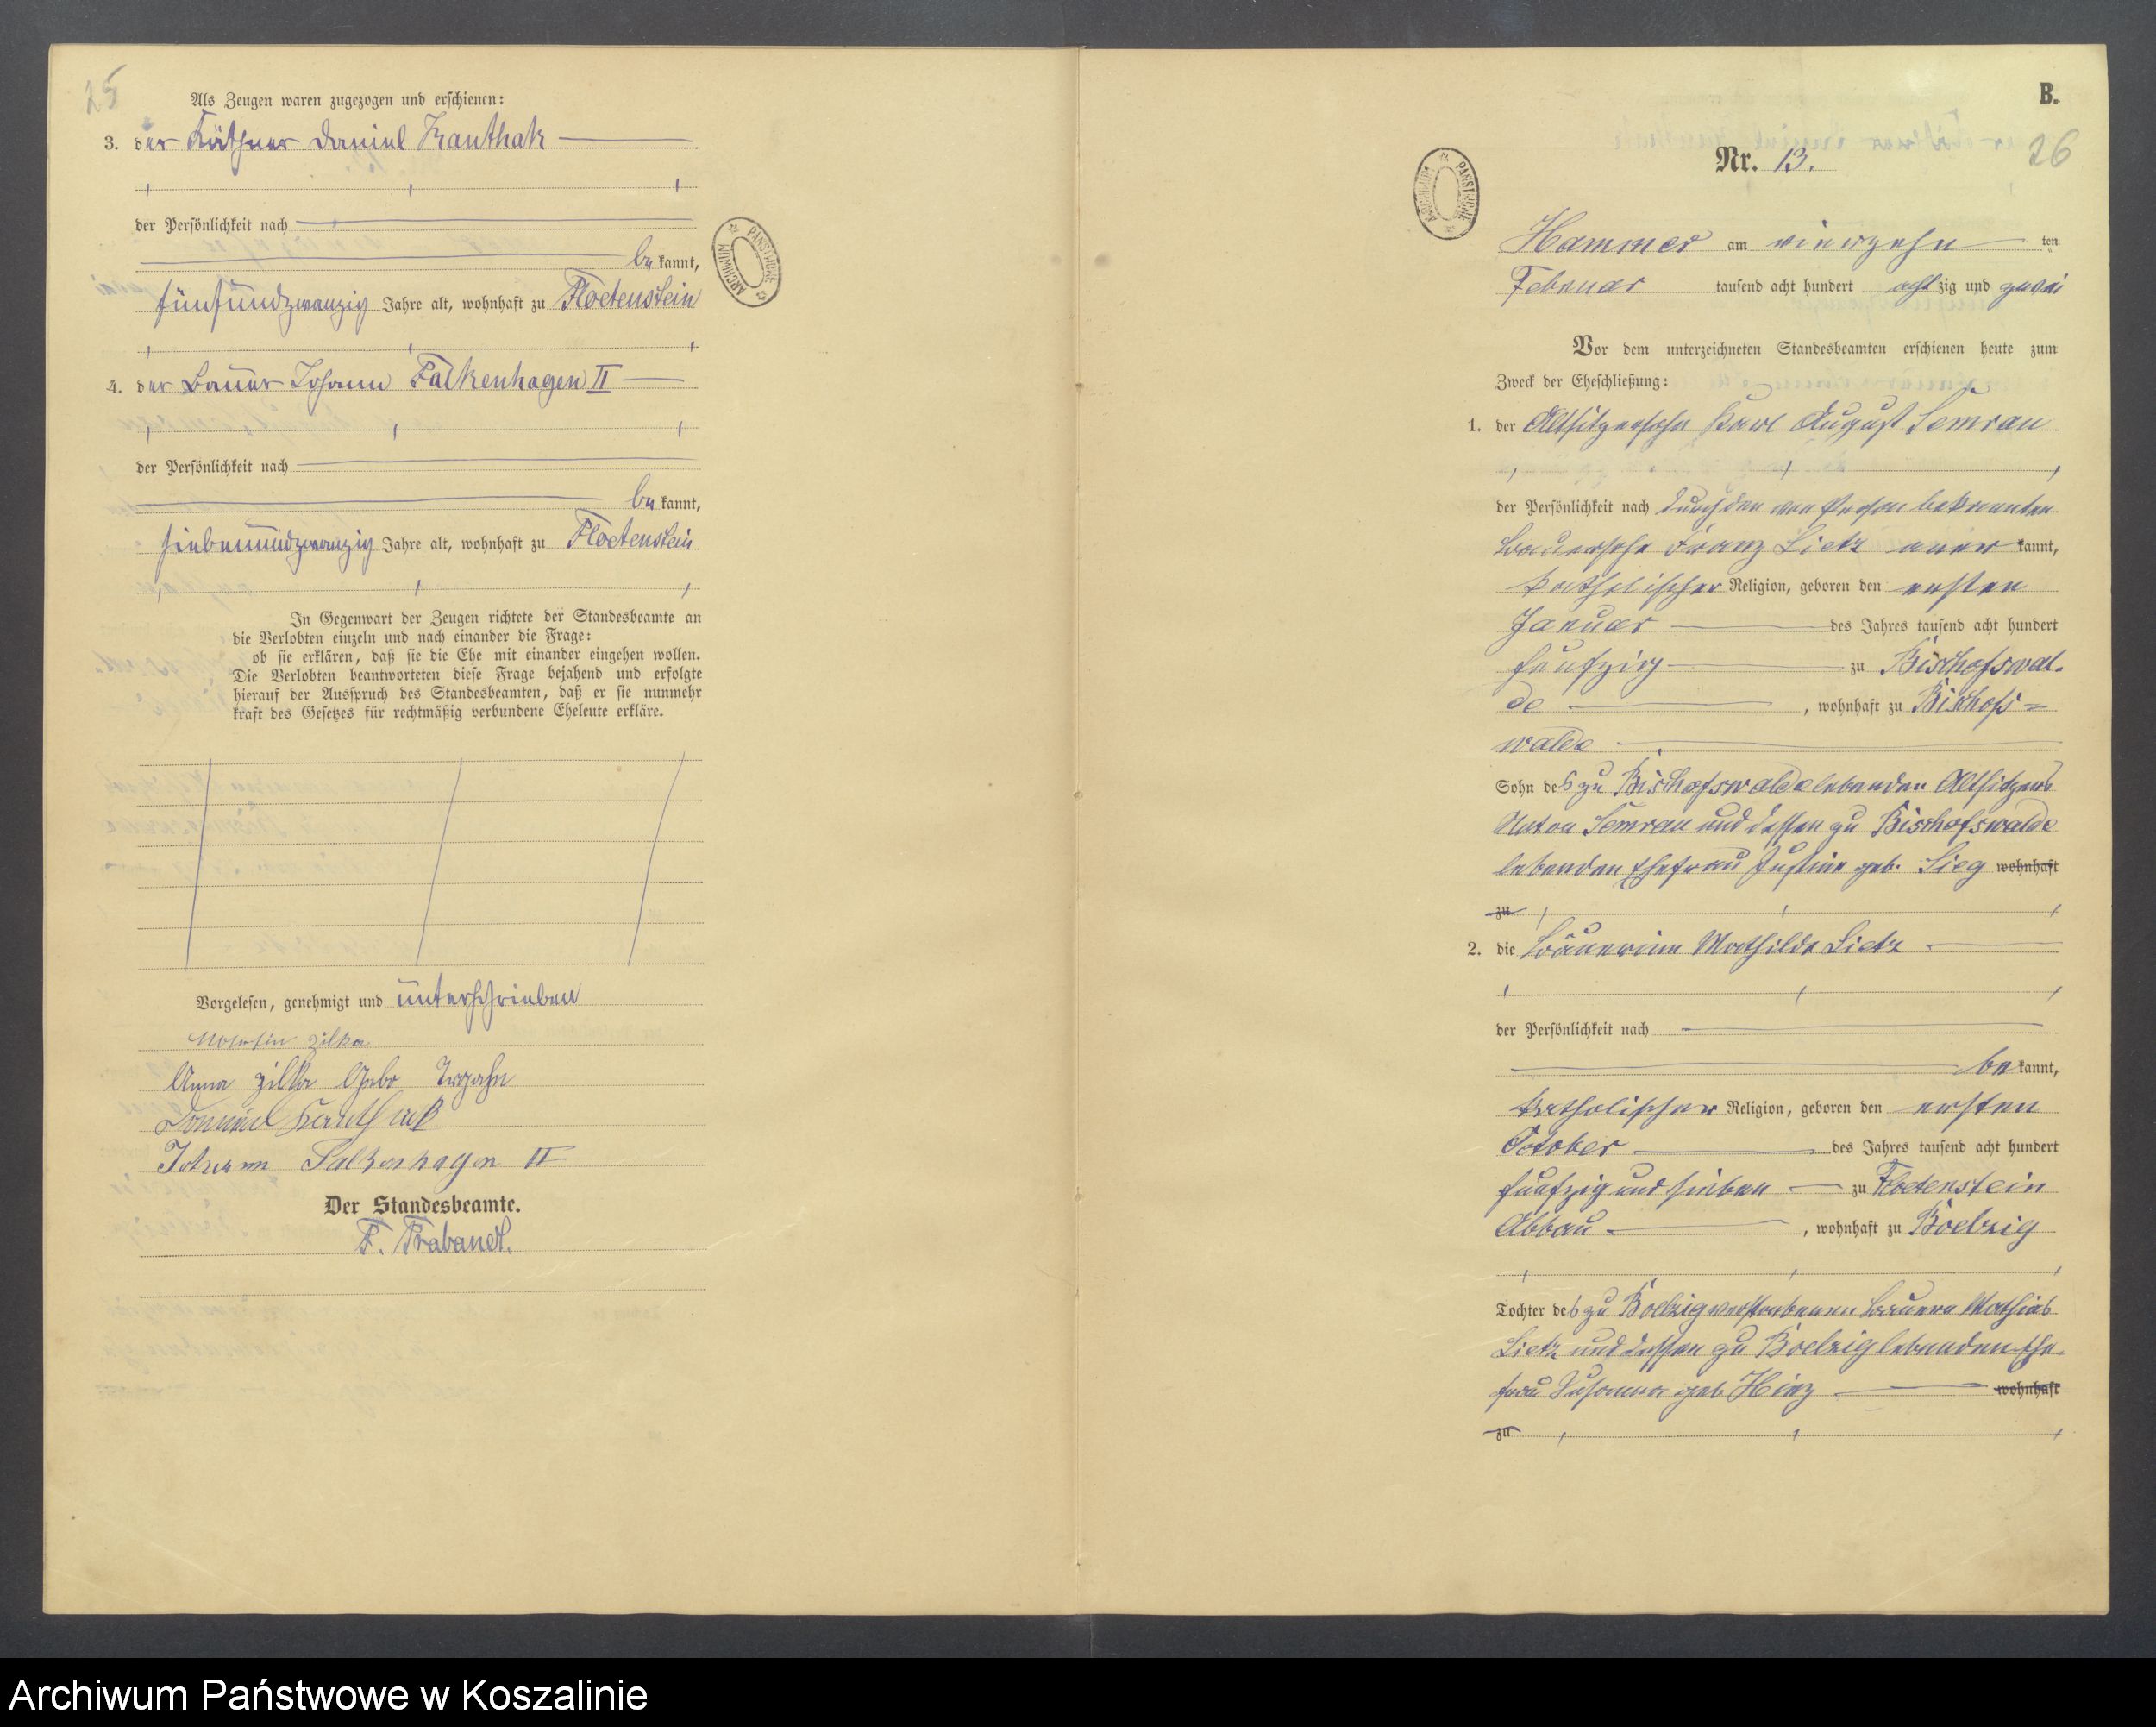 25
Als Zeugen waren zugezogen und erschienen:
3. der Käthner Daniel Kanthak
der Persönlichkeit nach
bekannt,
fünfundzwanzig Jahre alt, wohnhaft zu Floetenstein
4. der Bauer Johann Falkenhagen II
der Persönlichkeit nach
bekannt,
siebenundzwanzig Jahre alt, wohnhaft zu Floetenstein
In Gegenwart der Zeugen richtete der Standesbeamte an
die Verlobten einzeln und nach einander die Frage:
ob sie erklären, daß sie die Ehe mit einander eingehen wollen.
Die Verlobten beantworteten diese Frage bejahend und erfolgte
hierauf der Ausspruch des Standesbeamten, daß er sie nunmehr
kraft des Gesetzes für rechtmäßig verbundene Eheleute erkläre.
Vorgelesen, genehmigt und unterschrieben
zilka
Anna zilka Gebo Trojahn
Johann Falkenhagen II
Der Standesbeamte.
F. Trabandt.
ARCHIWUM PAŃSTWOWE
B.
26
ARCHIWUM PAŃSTWOWE
Nr. 13.
Hammer am vierzehnten
Februar tausend acht hundert achtzig und zwei
Vor dem unterzeichneten Standesbeamten erschienen heute zum
Zweck der Eheschließung:
1. der Altsitzersohn Karl August Semrau
der Persönlichkeit nach durch den von Person bekannten
Bauersohn Franz Lietz anerkannt,
katholischer Religion, geboren den ersten
Januar des Jahres tausend acht hundert
fünfzig zu Bischofswal-
de, wohnhaft zu Bischofs=
walde
Sohn des zu Bischofswalde lebenden Altsitzers
Anton Semrau und dessen zu Bischofswalde
lebenden Ehefrau Justine geb. Sieg wohnhaft
zu
2. die Bäuerinn Mathilde Lietz
der Persönlichkeit nach
bekannt,
katholischer Religion, geboren den ersten
October des Jahres tausend acht hundert
fünfzig und sieben zu Floetenstein
Abbau, wohnhaft zu Boelzig
Tochter des zu Boelzig verstorbenen Bauern Mathias
Lietz und dessen zu Boelzig lebenden Ehe-
frau Susanna geb Hinz wohnhaft
zu
Archiwum Państwowe w Koszalinie